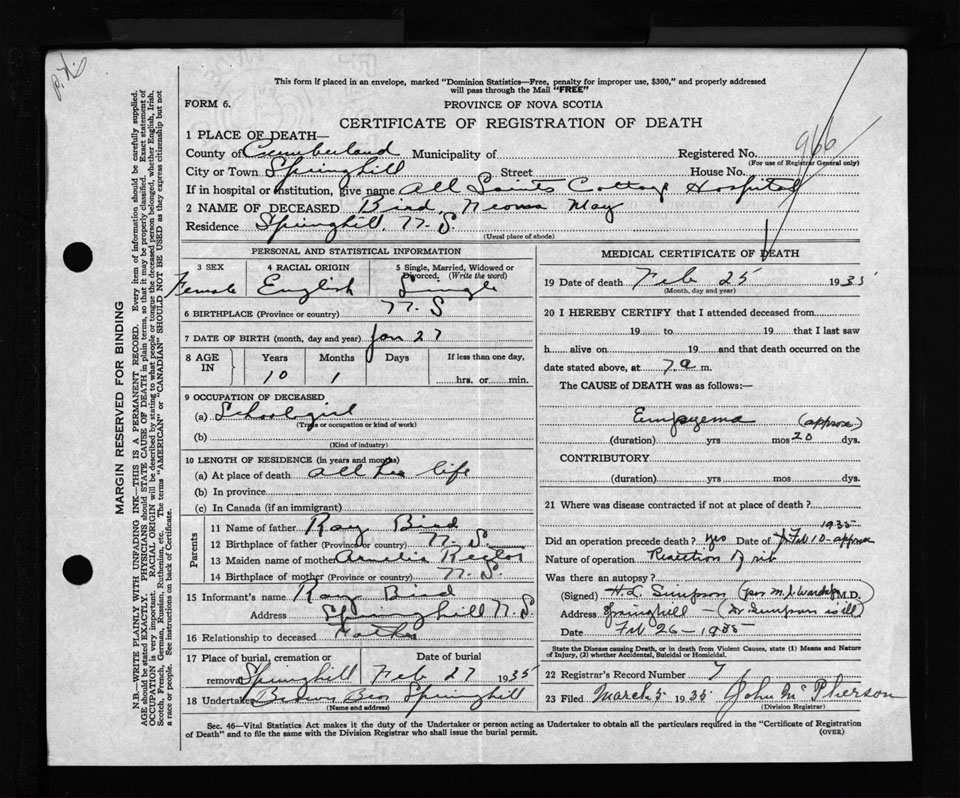 P.X.
This form if placed in an envelope, marked "Dominion Statistics—Free, penalty for improper use, $300," and properly addressed
will pass through the Mail "FREE"
FORM 6.
PROVINCE OF NOVA SCOTIA
CERTIFICATE OF REGISTRATION OF DEATH
966
1 PLACE OF DEATH—
County of Cumberland Municipality of Registered No.
(For use of Registrar General only)
City or Town Springhill Street House No.
If in hospital or institution, give name All Saints Cottage Hospital
2 NAME OF DECEASED Bird, Neoma May
Residence Springhill, N.S.
(Usual place of abode)
PERSONAL AND STATISTICAL INFORMATION
3 SEX 4 RACIAL ORIGIN 5 Single, Married, Widowed or
Divorced. (Write the word)
Female English Single
6 BIRTHPLACE (Province or country) N.S
7 DATE OF BIRTH (month, day and year) Jan 27
8 AGE IN Years Months Days If less than one day,
10 1 hrs. or min.
9 OCCUPATION OF DECEASED
(a) School girl
(Trade or occupation or kind of work)
(b)
(Kind of industry)
10 LENGTH OF RESIDENCE (in years and months)
(a) At place of death all her life
(b) In province
(c) In Canada (if an immigrant)
Parents
11 Name of father Ray Bird
12 Birthplace of father (Province or country) N.S.
13 Maiden name of mother Amelia Rector
14 Birthplace of mother (Province or country) N.S.
15 Informant's name Ray Bird
Address Springhill N.S.
16 Relationship to deceased Father
17 Place of burial, cremation or Date of burial
removal Springhill Feb 27 1935
18 Undertaker Brown Bros Springhill
(Name and address)
MEDICAL CERTIFICATE OF DEATH
19 Date of death Feb 25 1935
(Month, day and year)
20 I HEREBY CERTIFY that I attended deceased from
19 to 19 that I last saw
h alive on 19 and that death occurred on the
date stated above, at 7 a m.
The CAUSE of DEATH was as follows:—
Empyema (approx)
(duration) yrs mos 20 dys.
CONTRIBUTORY
(duration) yrs mos dys.
21 Where was disease contracted if not at place of death?
1935
Did an operation precede death? yes Date of Feb 10 - approx
Nature of operation Resection of rib
Was there an autopsy?
(Signed) H.L. Simpson (per M.J. M.D.
Address Springhill — (Dr Simpson is ill)
Date Feb 26 - 1935
State the Disease causing Death, or in death from Violent Causes, state (1) Means and
Nature of Injury, (2) whether Accidental, Suicidal or Homicidal.
22 Registrar's Record Number 7
23 Filed March 5 1935 John McPherson
(Division Registrar)
Sec. 46—Vital Statistics Act makes it the duty of the Undertaker or person acting as Undertaker to obtain all the particulars required in the "Certificate of Registration
of Death" and to file the same with the Division Registrar who shall issue the burial permit.
(OVER)
MARGIN RESERVED FOR BINDING
N.B.—WRITE PLAINLY WITH UNFADING INK—THIS IS A PERMANENT RECORD. Every item of information should be carefully supplied.
AGE should be stated EXACTLY. PHYSICIANS should STATE CAUSE OF DEATH in plain terms, so that it may be properly classified. Exact statement of
OCCUPATION is very important. RACIAL ORIGIN will be described by stating to what people or tongue the deceased person belonged, whether English, Irish,
Scotch, French, German, Russian, Ruthenian, etc. The terms "AMERICAN" or "CANADIAN" SHOULD NOT BE USED as they express citizenship but not
a race or people. See instructions on back of Certificate.